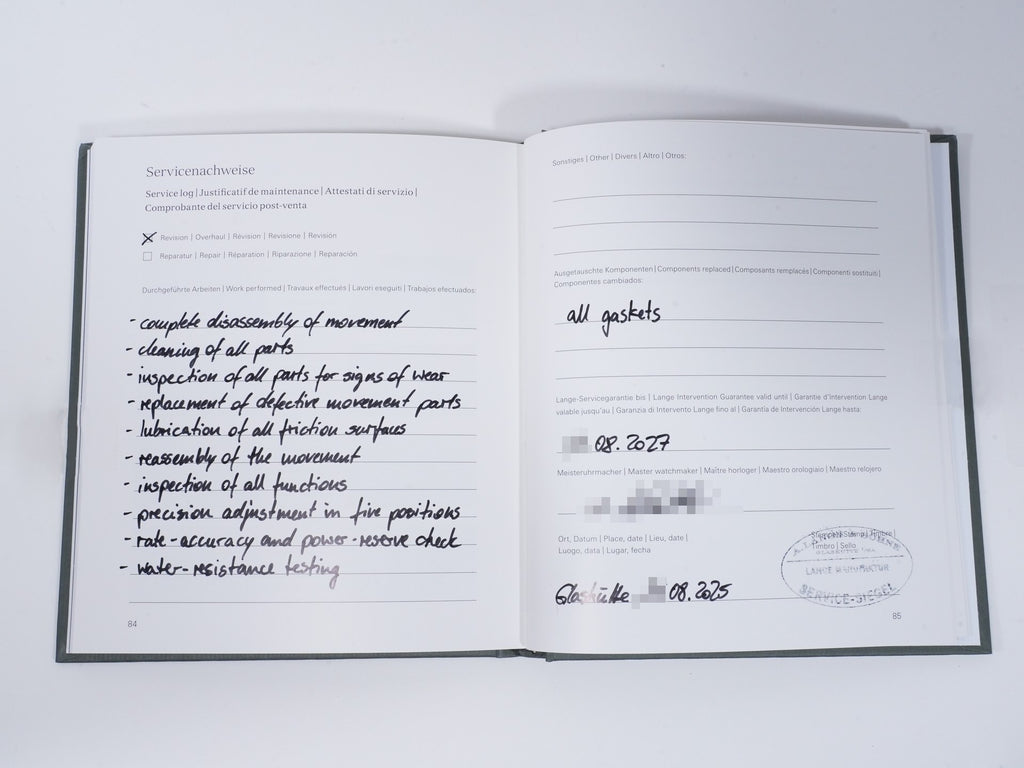 Servicenachweise
Service log | Justificatif de maintenance | Attestati di servizio |
Comprobante del servicio post-venta
Revision | Overhaul | Révision | Revisione | Revisión
Reparatur | Repair | Réparation | Riparazione | Reparación
Durchgeführte Arbeiten | Work performed | Travaux effectués | Lavori eseguiti | Trabajos efectuados:
- complete disassembly of movement
- cleaning of all parts
- inspection of all parts for signs of wear
- replacement of defective movement parts
- lubrication of all friction surfaces
- reassembly of the movement
- inspection of all functions
- precision adjustment in five positions
- rate-accuracy and power-reserve check
- water-resistance testing
84
Sonstiges | Other | Divers | Altro | Otros:
Ausgetauschte Komponenten | Components replaced | Composants remplacés | Componenti sostituiti |
Componentes cambiados:
all gaskets
Lange-Servicegarantie bis | Lange Intervention Guarantee valid until | Garantie d'Intervention Lange
valable jusqu'au | Garanzia di Intervento Lange fino al | Garantía de Intervención Lange hasta:
08.2027
Meisteruhrmacher | Master watchmaker | Maître horloger | Maestro orologiaio | Maestro relojero
Ort, Datum | Place, date | Lieu, date |
Luogo, data | Lugar, fecha
Timbro | Sello
Glashütte 08.2025
A. LANGE & SÖHNE
LANGE MANUFAKTUR
SERVICE-SIEGEL
85